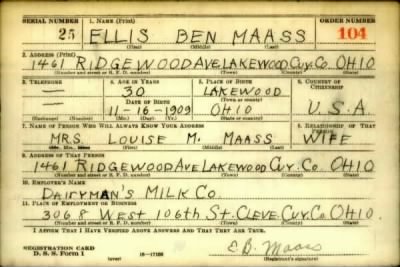 SERIAL NUMBER 1. NAME (Print) ORDER NUMBER
25 ELLIS BEN MAASS 104
(First) (Middle) (Last)
2. ADDRESS (Print)
1461 RIDGEWOOD AVE. LAKEWOOD CUY. CO. OHIO
(Number and street or R. F. D. number) (Town) (County) (State)
3. TELEPHONE 4. AGE IN YEARS 5. PLACE OF BIRTH 6. COUNTRY OF CITIZENSHIP
— 30 LAKEWOOD
DATE OF BIRTH (Town or county)
— 11-16-1909 OHIO U.S.A
(Exchange) (Number) (Mo.) (Day) (Yr.) (State or country)
7. NAME OF PERSON WHO WILL ALWAYS KNOW YOUR ADDRESS RELATIONSHIP OF THAT PERSON
MRS. LOUISE M. MAASS WIFE
(Mr., Mrs., Miss) (First) (Middle) (Last)
8. ADDRESS OF THAT PERSON
1461 RIDGEWOOD AVE. LAKEWOOD CUY. CO. OHIO
(Number and street or R. F. D. number) (Town) (County) (State)
10. EMPLOYER'S NAME
DAIRYMAN'S MILK CO.
11. PLACE OF EMPLOYMENT OR BUSINESS
3068 WEST 106TH ST. CLEVE. CUY. CO. OHIO
(Number and street or R. F. D. number) (Town) (County) (State)
I AFFIRM THAT I HAVE VERIFIED ABOVE ANSWERS AND THAT THEY ARE TRUE.
REGISTRATION CARD E.B. Maass
D. S. S. Form 1 (over) (Registrant's signature)